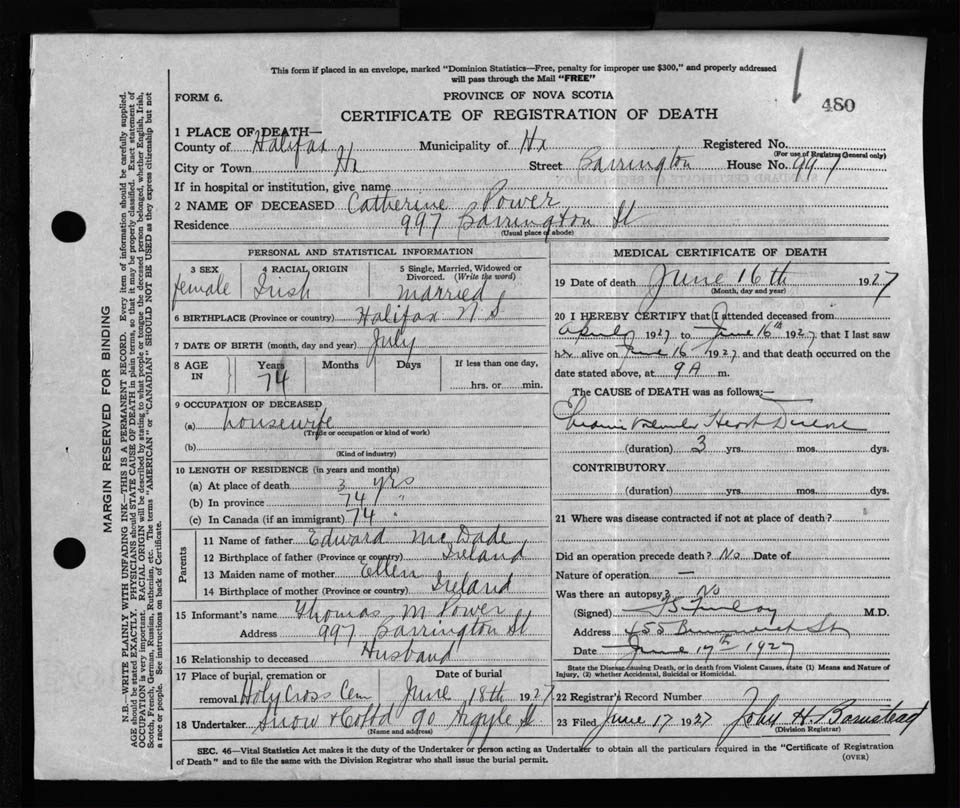 This form if placed in an envelope, marked "Dominion Statistics—Free, penalty for improper use $300," and properly addressed
will pass through the Mail "FREE"
480
FORM 6.
PROVINCE OF NOVA SCOTIA
CERTIFICATE OF REGISTRATION OF DEATH
1 PLACE OF DEATH—
County of Halifax Municipality of Hx Registered No.
(For use of Registrar General only)
City or Town Hx Street Barrington House No. 997
If in hospital or institution, give name
2 NAME OF DECEASED Catherine Power
Residence 997 Barrington St
(Usual place of abode)
PERSONAL AND STATISTICAL INFORMATION
3 SEX female
4 RACIAL ORIGIN Irish
5 Single, Married, Widowed or Divorced. (Write the word) married
6 BIRTHPLACE (Province or country) Halifax N S
7 DATE OF BIRTH (month, day and year) July
8 AGE IN Years 74 Months Days If less than one day, hrs. or min.
9 OCCUPATION OF DECEASED
(a) housewife
(Trade or occupation or kind of work)
(b)
(Kind of industry)
10 LENGTH OF RESIDENCE (in years and months)
(a) At place of death 3 yrs
(b) In province 74 "
(c) In Canada (if an immigrant) 74 "
Parents
11 Name of father Edward McDade
12 Birthplace of father (Province or country) Ireland
13 Maiden name of mother Ellen
14 Birthplace of mother (Province or country) Ireland
15 Informant's name Thomas M Power
Address 997 Barrington St
16 Relationship to deceased Husband
17 Place of burial, cremation or removal Holy Cross Cem Date of burial June 18th 1927
18 Undertaker Snow & Co Ltd 90 Argyle St
(Name and address)
MEDICAL CERTIFICATE OF DEATH
19 Date of death June 16th 1927
(Month, day and year)
20 I HEREBY CERTIFY that I attended deceased from
April 1927 to June 16th 1927 that I last saw
her alive on June 16 1927 and that death occurred on the
date stated above, at 9 A m.
The CAUSE OF DEATH was as follows:—
Heart Disease
(duration) 3 yrs. mos. dys.
CONTRIBUTORY
(duration) yrs. mos. dys.
21 Where was disease contracted if not at place of death?
Did an operation precede death? No Date of
Nature of operation —
Was there an autopsy? No
(Signed) M.D.
Address 455 Brunswick St
Date June 17th 1927
State the Disease causing Death, or in death from Violent Causes, state (1) Means and Nature of
Injury, (2) whether Accidental, Suicidal or Homicidal.
22 Registrar's Record Number
23 Filed June 17 1927 John H. Barnstead
(Division Registrar)
SEC. 46—Vital Statistics Act makes it the duty of the Undertaker or person acting as Undertaker to obtain all the particulars required in the "Certificate of Registration
of Death" and to file the same with the Division Registrar who shall issue the burial permit.
(OVER)
MARGIN RESERVED FOR BINDING
N.B.—WRITE PLAINLY WITH UNFADING INK—THIS IS A PERMANENT RECORD. Every item of information should be carefully supplied.
AGE should be stated EXACTLY. PHYSICIANS should STATE CAUSE OF DEATH in plain terms, so that it may be properly classified. Exact statement of
OCCUPATION is very important. RACIAL ORIGIN will be described by stating to what people or tongue the deceased person belonged, whether English, Irish,
Scotch, French, German, Russian, Ruthenian, etc. The terms "AMERICAN" or "CANADIAN" SHOULD NOT BE USED as they express citizenship but not
a race or people. See instructions on back of Certificate.